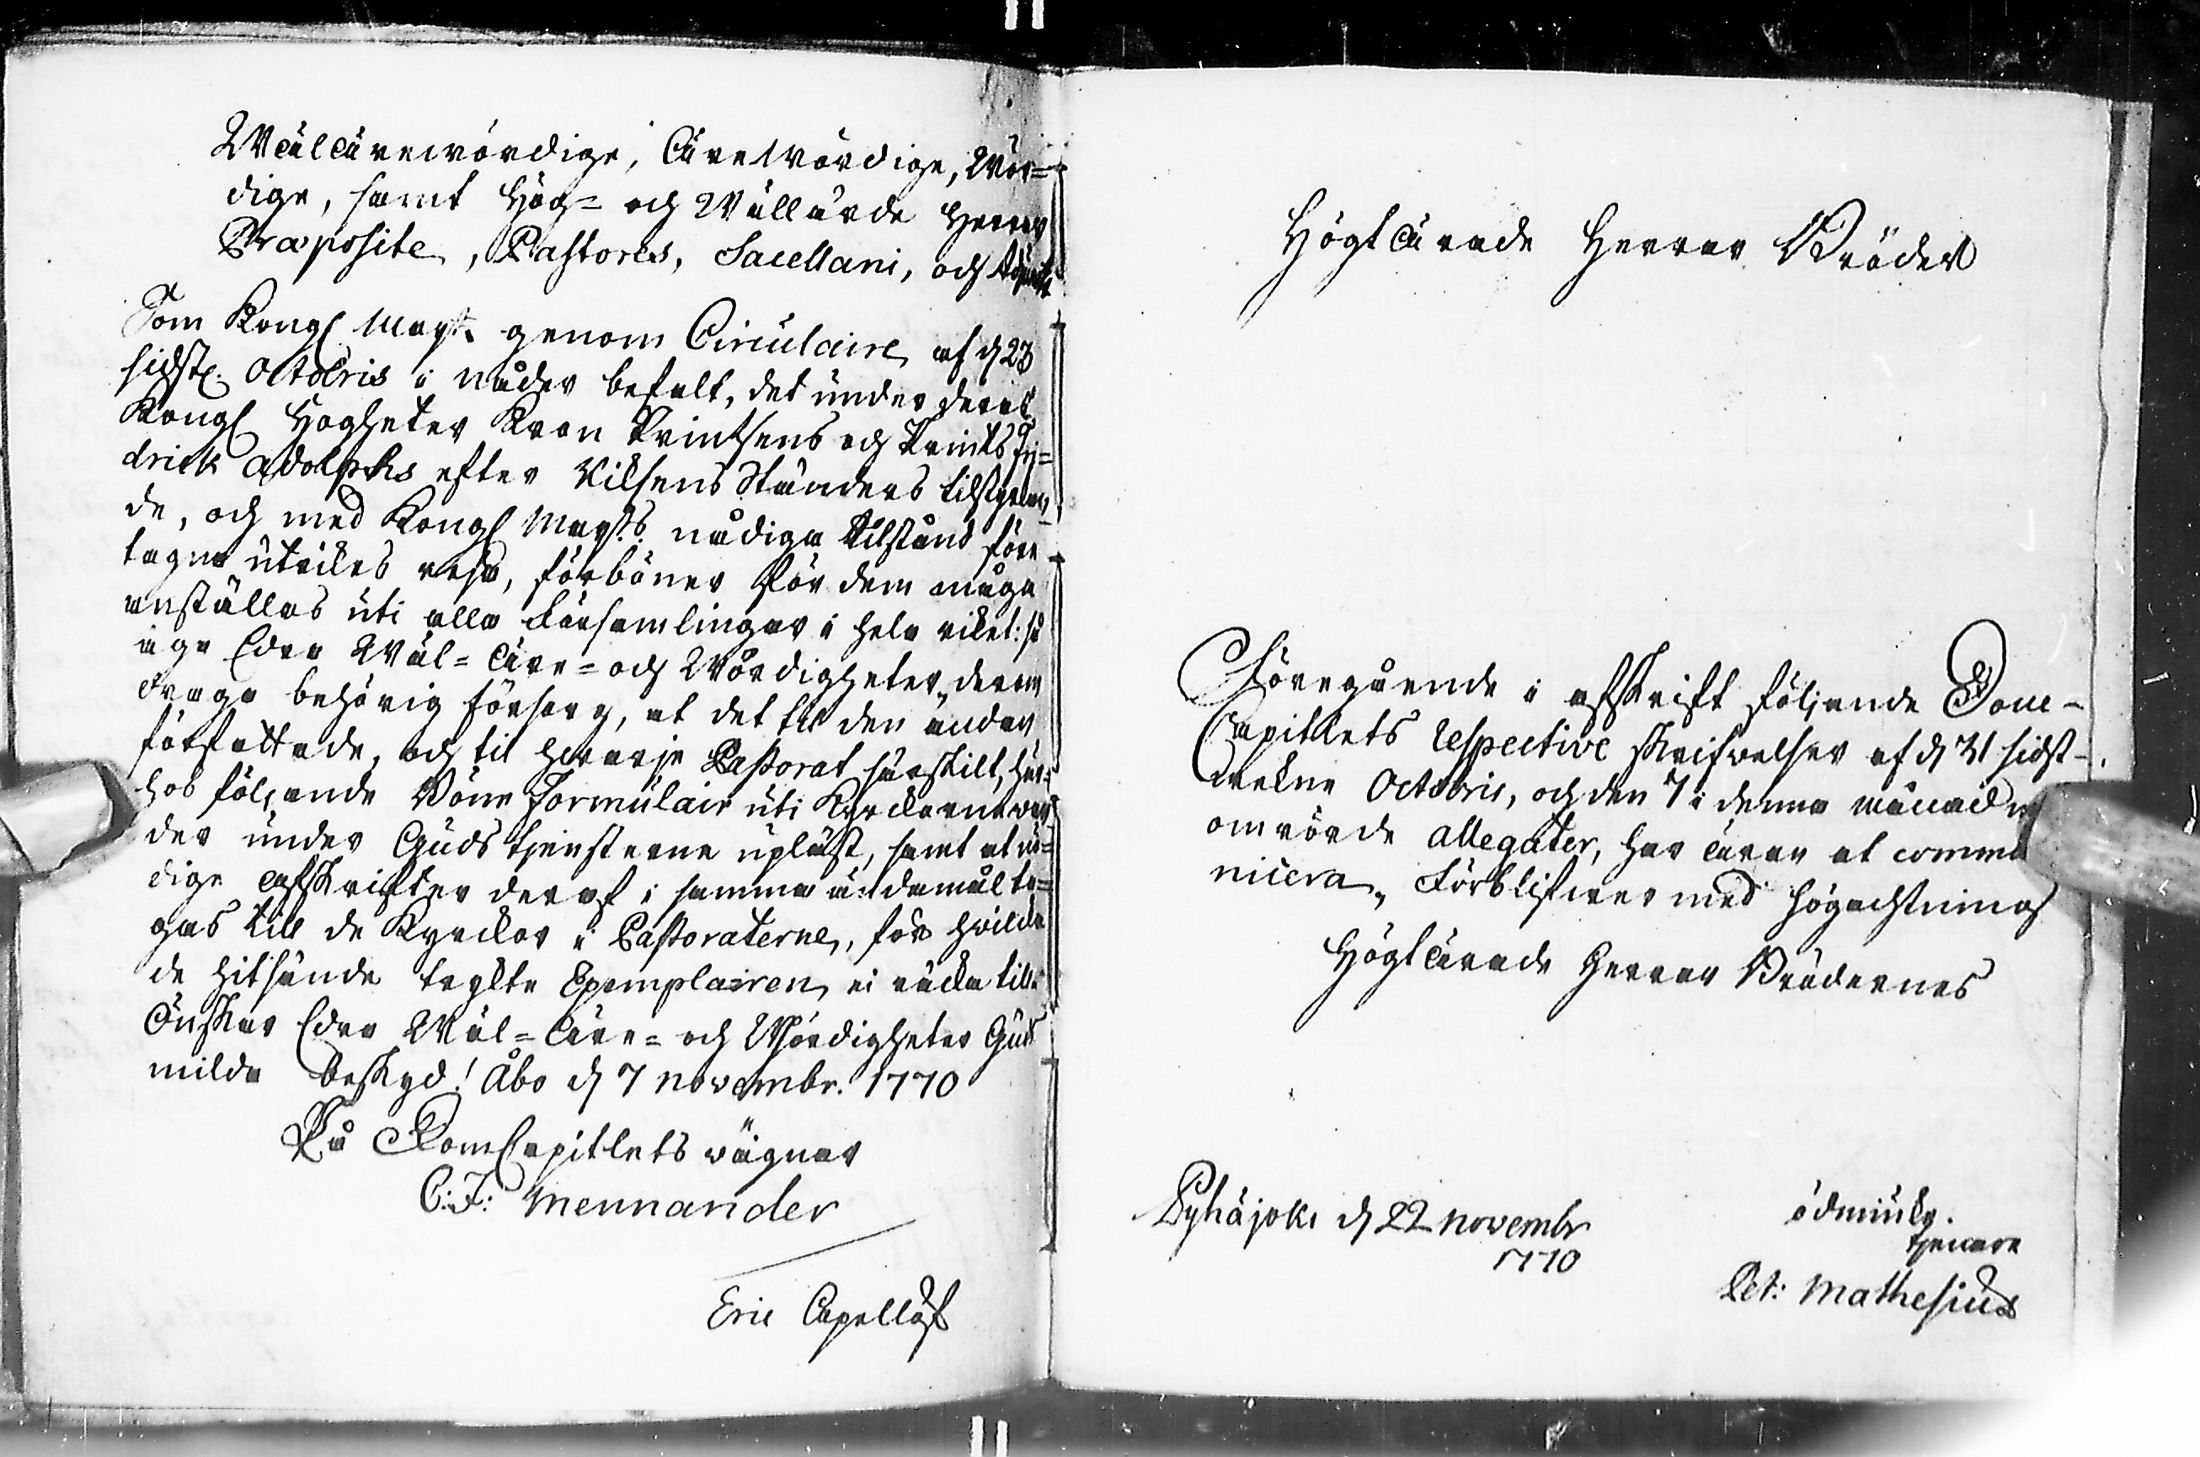 Wälärewördige, Ärewördige, Wör=
dige, samt Hög= och Wällärde Herrar
Præposite, Pastores, Sacellani, och
Som Kongl Mayst. genom Circulaire af d 23
sidstl. Octobris i nåder befalt, det under deras
Kongl Högheter Kron Printsens och Prints Fri=
drick Adolphs efter Riksens Ständers tilstyrkan=
de, och med Kongl Maysts. nådiga tilstånd före
tagne utrikes resa, förböner för dem måga
anställas uti alla Församlingar i hela riket: så
äge Eder Wäl= Äre= och Wördigheter, derom
draga behörig försorg, at det til den ändan
författade, och til hwarje Pastorat särskilt, här=
hos följande Böne Formulair uti Kyrckorne war
der under Guds tjensterne upläst, samt at nö=
dige Afskrifter deraf i samma ändamål ta=
gas till de Kyrckor i Pastoraterne, för hwilka
de hitsände tryckte Exemplairen ei räcka till.
Önskar Eder Wäl= Äre= och Wördigheter Guds
milda beskyd! Åbo d 7 novembr. 1770
På DomCapitlets wägnar
C: F: Mennander
Eric Capellöf
Högtärade Herrar Bröder
Föregående i afskrift följande Dom-
Capitlets respective skrifwelser af d 31 sidst-
wekne Octobris, och den 7 i denna månad
omrörde allegater, har äran at commu
nicera, Förblifwer med högachtning
Högtärade Herrar Brödernes
Pyhäjoki d 22 novembr
1770
ödmiuke.
tjenare
Pet: Mathesius